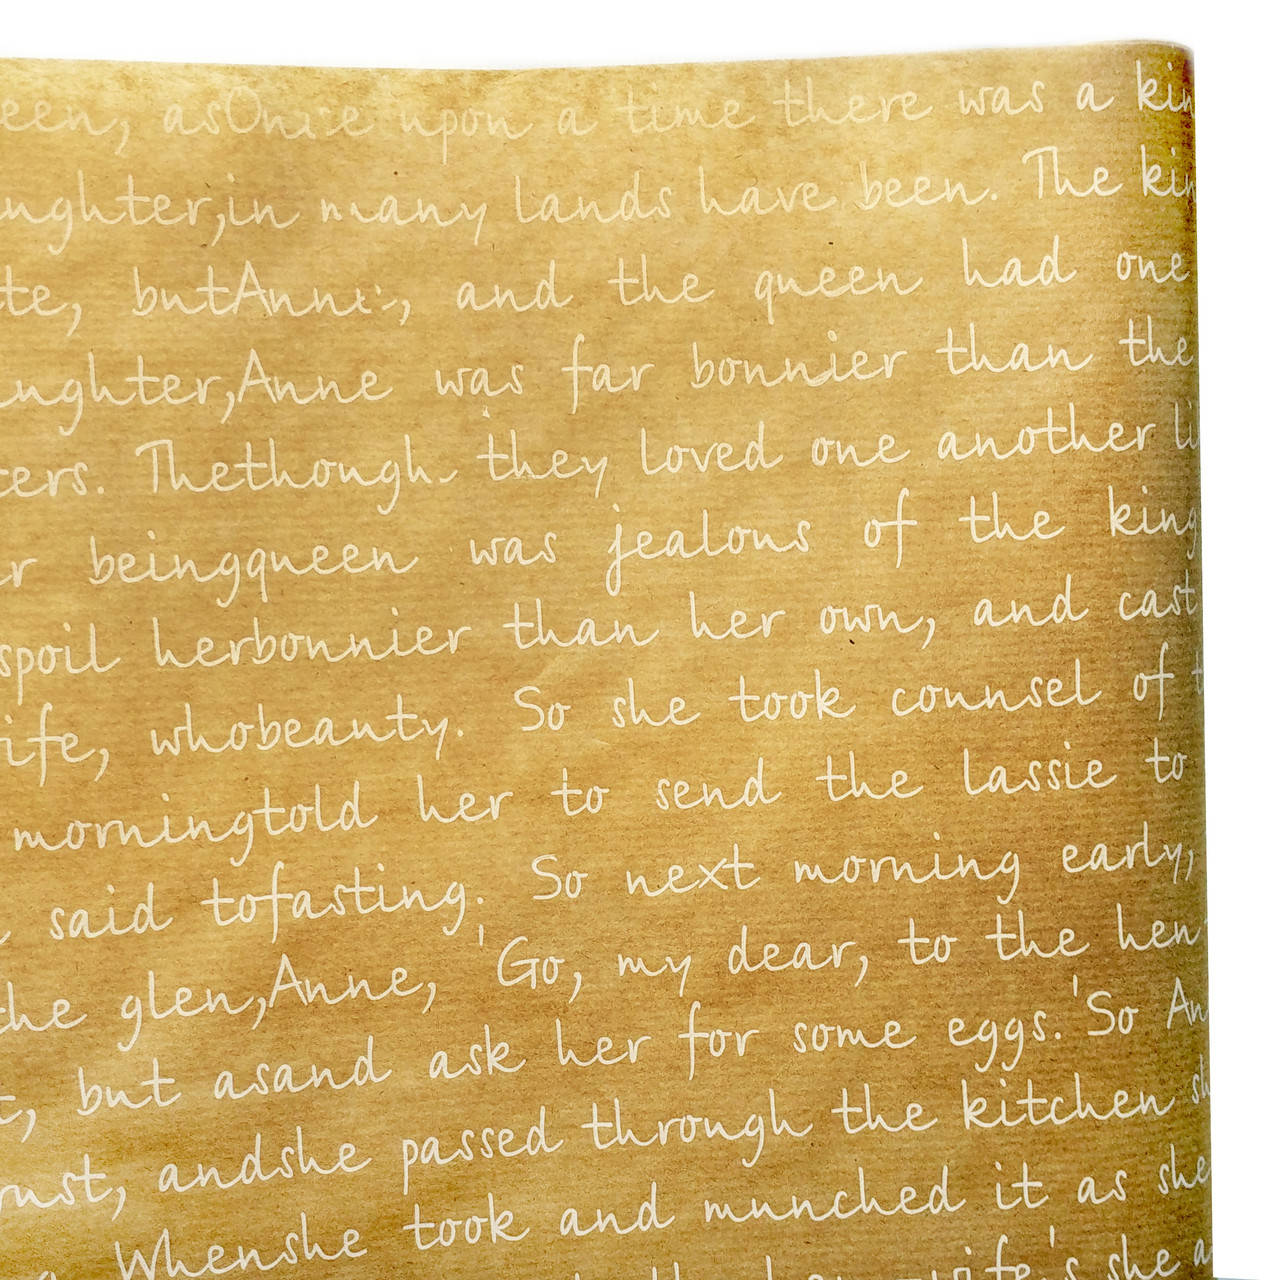 een, asOnce upon a time there was a kin
ughter,in many lands have been. The kin
te, butAnne, and the queen had one
ughter,Anne was far bonnier than the
ters. Thethough they loved one another li
r beingqueen was jealous of the king
spoil herbonnier than her own, and cast
ife, whobeauty. So she took counsel of t
morningtold her to send the lassie to
said tofasting. So next morning early,
the glen,Anne, 'Go, my dear, to the hen
t, but asand ask her for some eggs.'So An
rust, andshe passed through the kitchen sh
Whenshe took and munched it as she
wife's she a